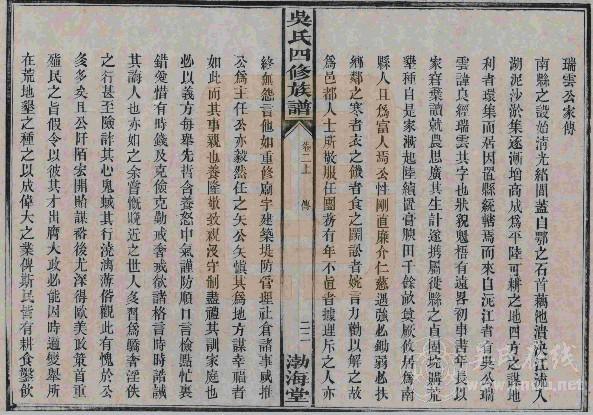 瑞雲公家傳
南縣之設始清光緒間蓋自鄂之石首藕池潰決江流入
湖泥沙淤集逐漸增高成為平陸可耕之地四方之謀地
利者環集而居因置縣統轄焉而來自沅江者有吳公瑞
雲諱良經瑞雲其字也狀貌魁梧有遠界初事書史以
家窘棄讀就農思廣其生計遂携屬徙縣之直固垸購蓋
藥種自是家漸起陸續置膏腴田千餘畝食厥攸居為南
縣人且為富人焉公性剛直廉介仁慈遇強必鋤弱必扶
鄉鄰之寒者衣之饑者食之鬩訟者婉言力勸以解之故
為邑都人士所敬服任團務有年不直者據理斥之人亦
終無怨言他如重修廟宇建築堤防管理社倉諸事咸推
公為主任公亦毅然任之矢公矢慎其為地方謀幸福者
如此而其事親也養隆敬致親沒守制盡禮其訓家庭也
必以義方每舉先哲含養怒中氣謹防順口言檢點忙裏
錯愛惜有時錢及克儉克勤戒奢戒欲諸格言時時誥誡
其誨人也亦如之余嘗慨晚近之世人多習為驕奢淫佚
之行甚至險詐其心鬼蜮其行澆漓滔俗觀此有愧於公
多多矣且公阡陌宏開貽謀裕後尤深得歐美政策首重
殖民之旨假令以彼其才出膺大政必能因時通變舉所
在荒地墾之種之以成偉大之業俾斯民皆有耕食鑿飲
吳氏四修族譜
卷二上
傳
渤海堂